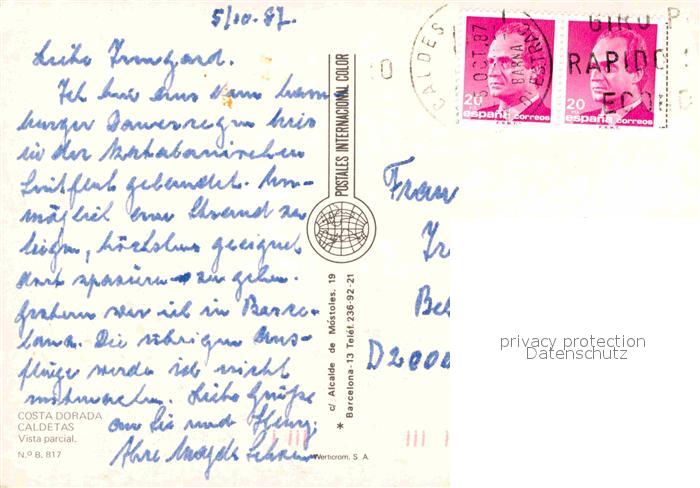 5/10.87.
Liebe Irmgard.
Ich bin aus dem Ham-
burger Dauerregen hier
in der katalanischen
Sintflut gelandet. Un-
möglich am Strand zu
liegen, höchstens geeignet
dort spazieren zu gehen.
Gestern war ich in Barce-
lona. Die übrigen Aus-
flüge werde ich nicht
mitmachen. Liebe Grüße
an Sie und
Ihre Magda
COSTA DORADA
CALDETAS
Vista parcial.
N.º B. 817
POSTALES INTERNACIONAL COLOR
c/ Alcalde de Móstoles, 19
Barcelona-13 Teléf. 236-92-21
Werticrom, S. A.
CALDES
D'ESTRAC
BARNA
5 OCT. 87
GIRO P
RAPIDO
ECO
20
españa correos
20
españa correos
Frau
Ir
Be
D 2000
privacy protection
Datenschutz